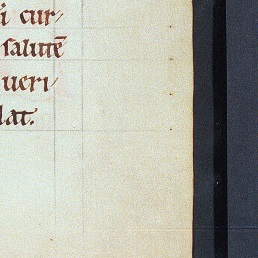 i cur-
salutē
ueri-
lat.